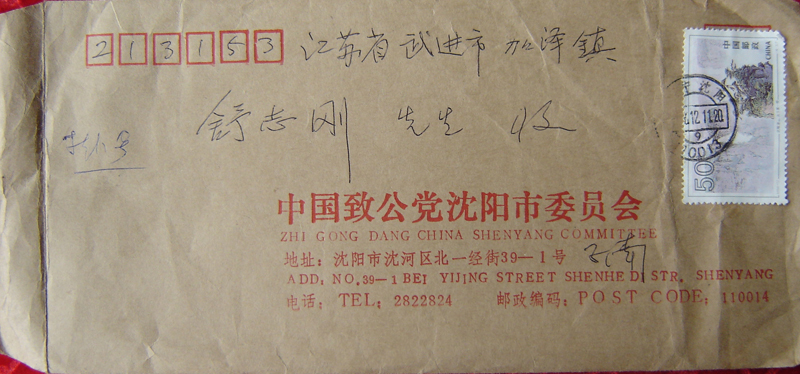 213153 江苏省武进市加泽镇
舒志刚 先生 收
中国邮政 CHINA
50
沈阳
.12.11.20
9
10013
中国致公党沈阳市委员会
ZHI GONG DANG CHINA SHENYANG COMMITTEE
地址：沈阳市沈河区北一经街39—1号
ADD：NO.39—1 BEI YIJING STREET SHENHE DISTR. SHENYANG
电话：TEL：2822824 邮政编码：POST CODE：110014